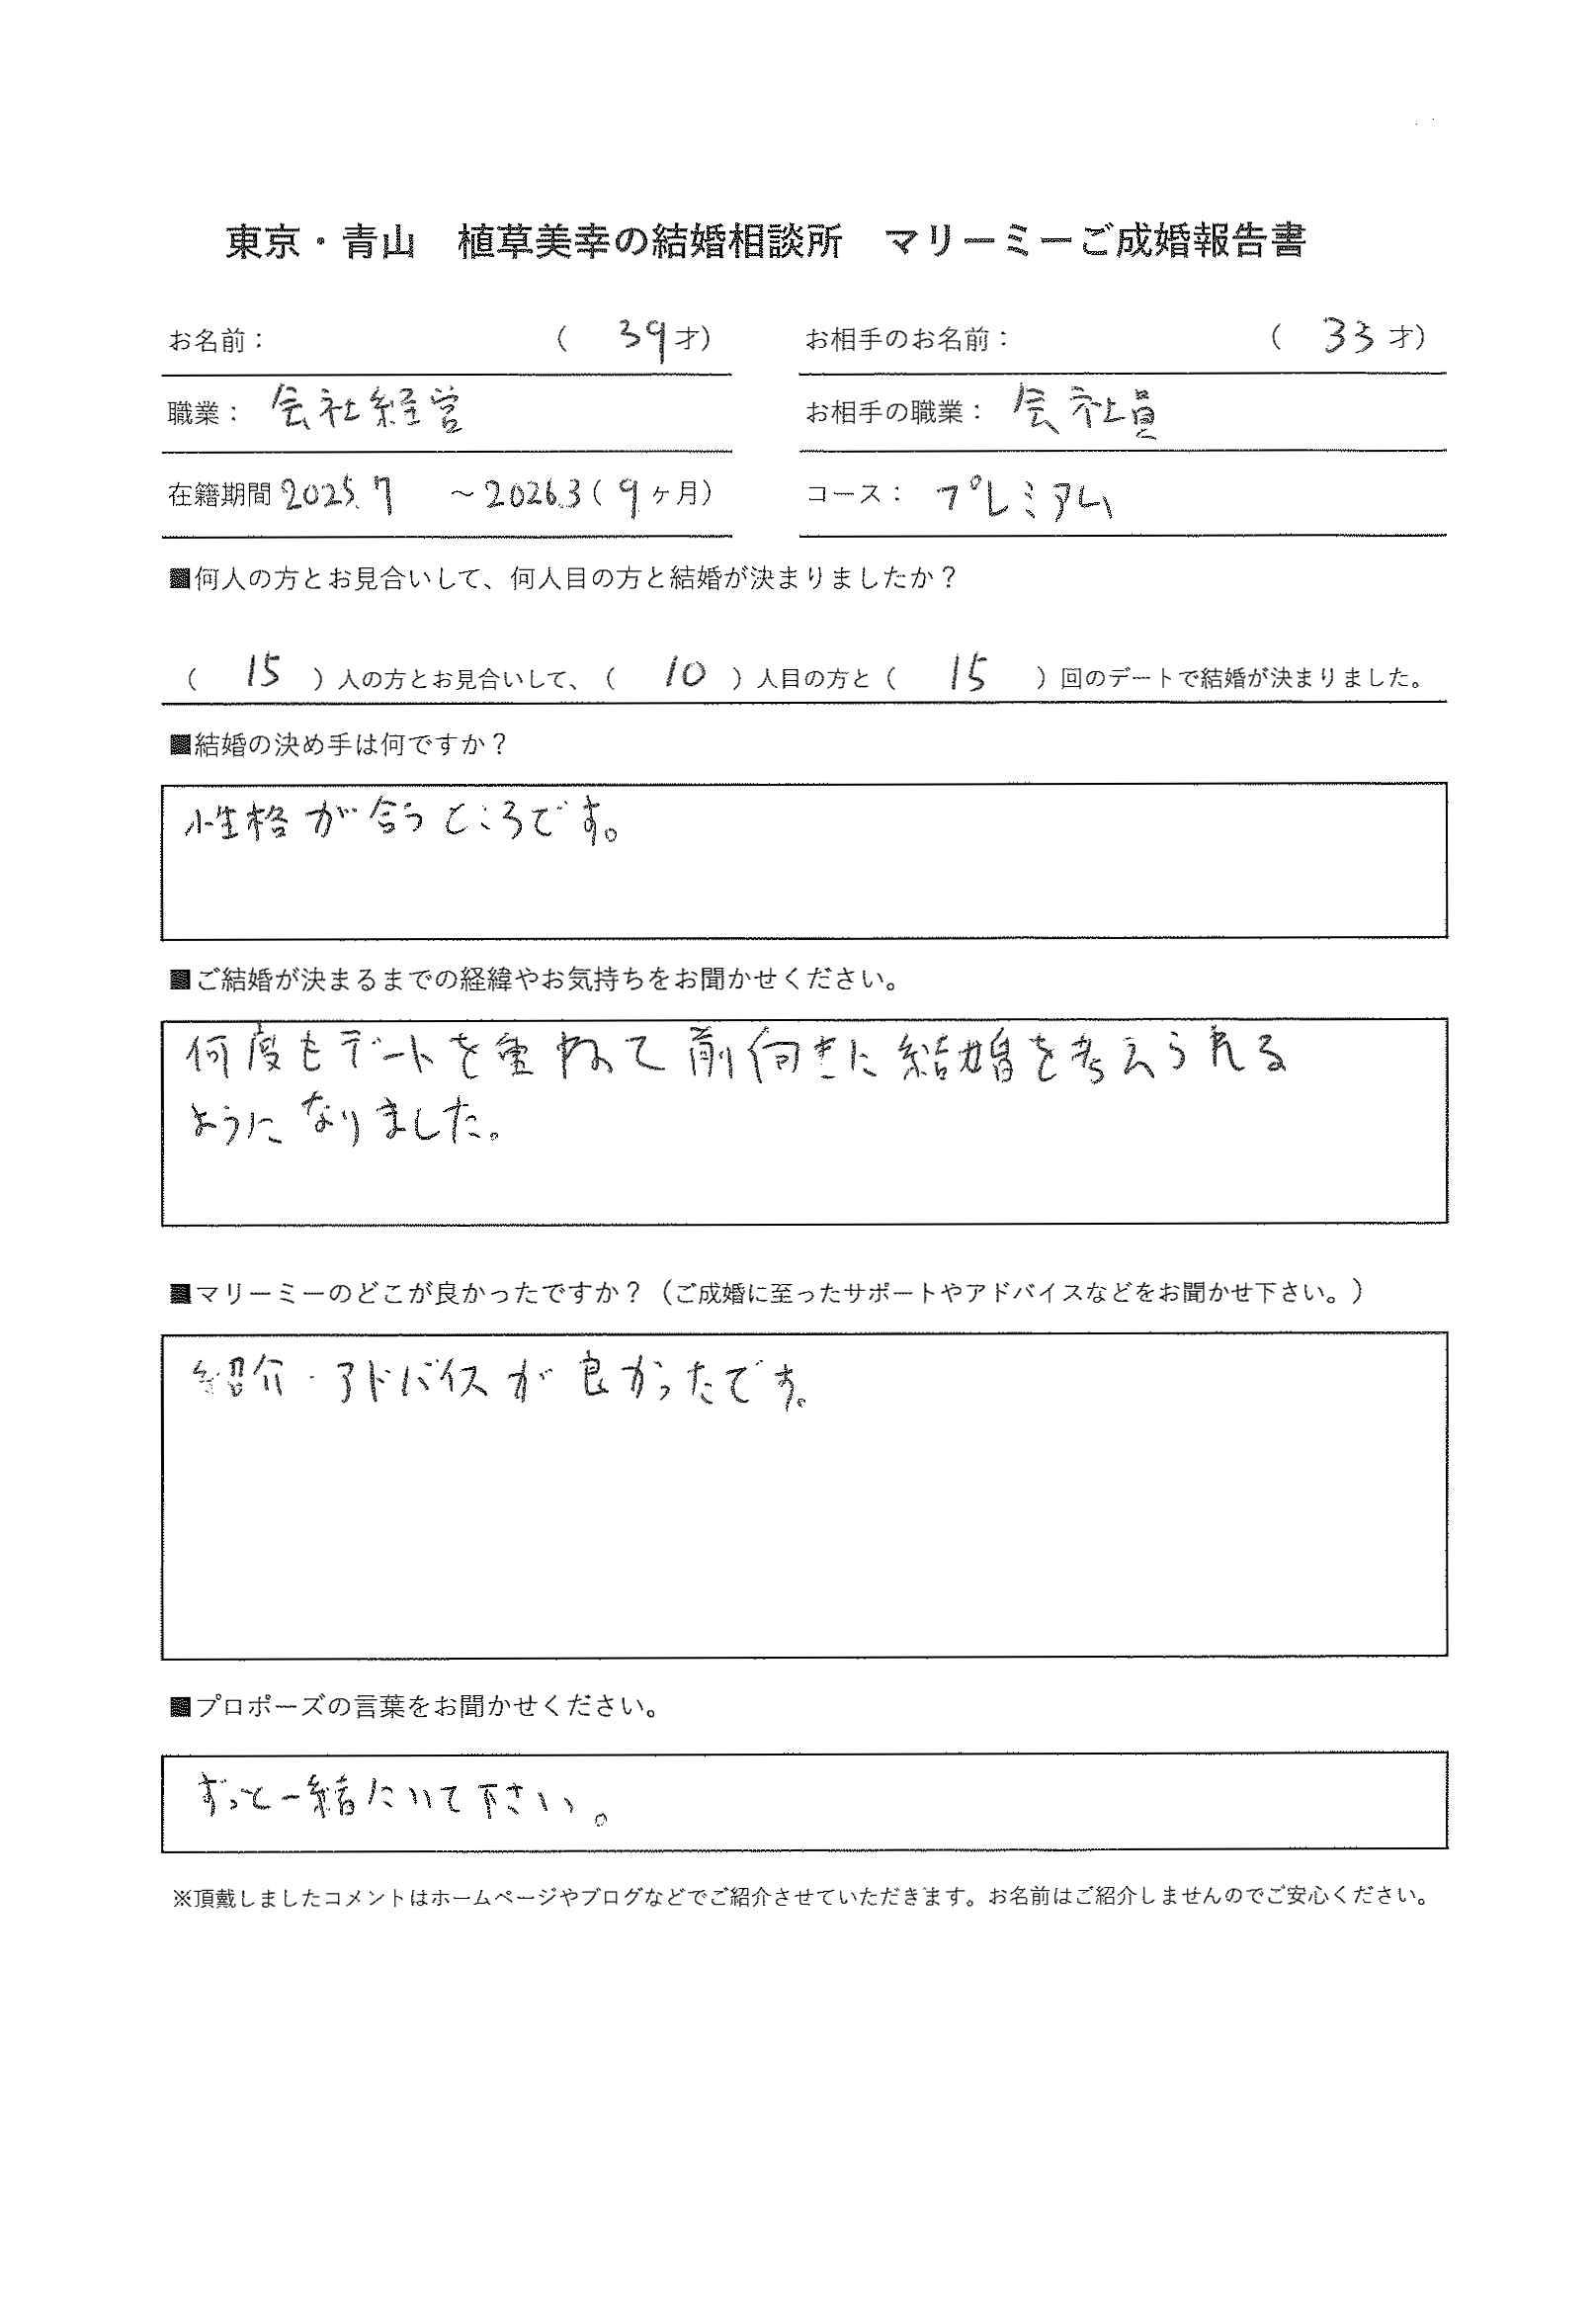 東京・青山　植草美幸の結婚相談所　マリーミーご成婚報告書
お名前：　（ 39 才）　お相手のお名前：　（ 33 才）
職業： 会社経営　お相手の職業： 会社員
在籍期間 2025.7 ～ 2026.3 （ 9 ヶ月）　コース： プレミアム
■何人の方とお見合いして、何人目の方と結婚が決まりましたか？
（ 15 ）人の方とお見合いして、（ 10 ）人目の方と（ 15 ）回のデートで結婚が決まりました。
■結婚の決め手は何ですか？
性格が合うところです。
■ご結婚が決まるまでの経緯やお気持ちをお聞かせください。
何度もデートを重ねて前向きに結婚を考えられる
ようになりました。
■マリーミーのどこが良かったですか？（ご成婚に至ったサポートやアドバイスなどをお聞かせ下さい。）
紹介・アドバイスが良かったです。
■プロポーズの言葉をお聞かせください。
ずっと一緒にいて下さい。
※頂戴しましたコメントはホームページやブログなどでご紹介させていただきます。お名前はご紹介しませんのでご安心ください。